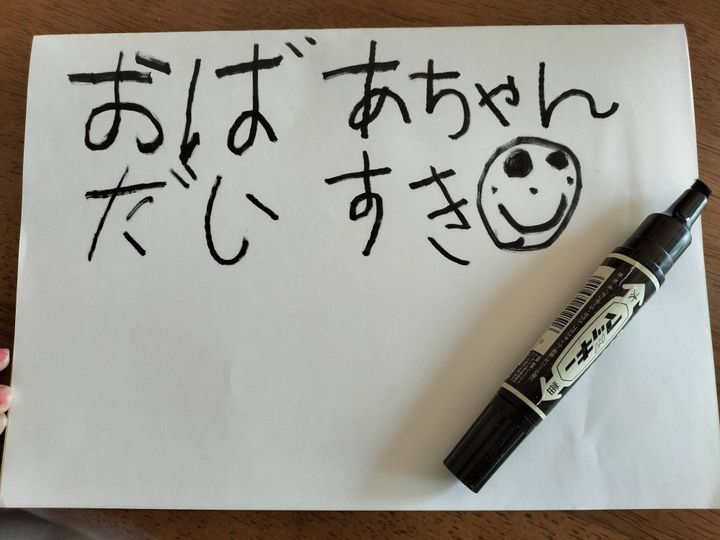 おばあちゃん
だいすき
太
マッキー
細